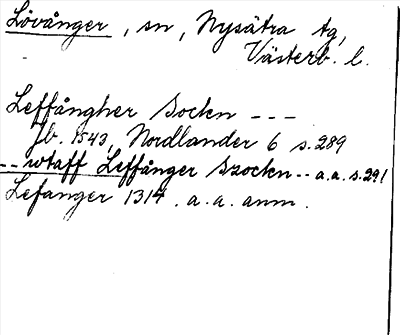 Lövånger, sn, Nysätra tg,
Västerb. l.
Leffångher Sockn - - -
Jb. 1543, Nordlander 6 s. 289
- - wtaff Leffånger Szockn - - a.a. s. 291
Lefanger 1314. a.a. anm.